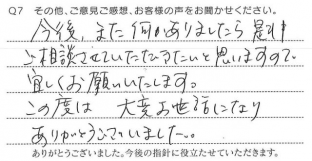 Q7 その他、ご意見ご感想、お客様の声をお聞かせください。
今後、また何かありましたら是非
ご相談させていただきたいと思いますので、
宜しくお願いいたします。
この度は 大変お世話になり
ありがとうございました。
ありがとうございました。今後の指針に役立たせていただきます。